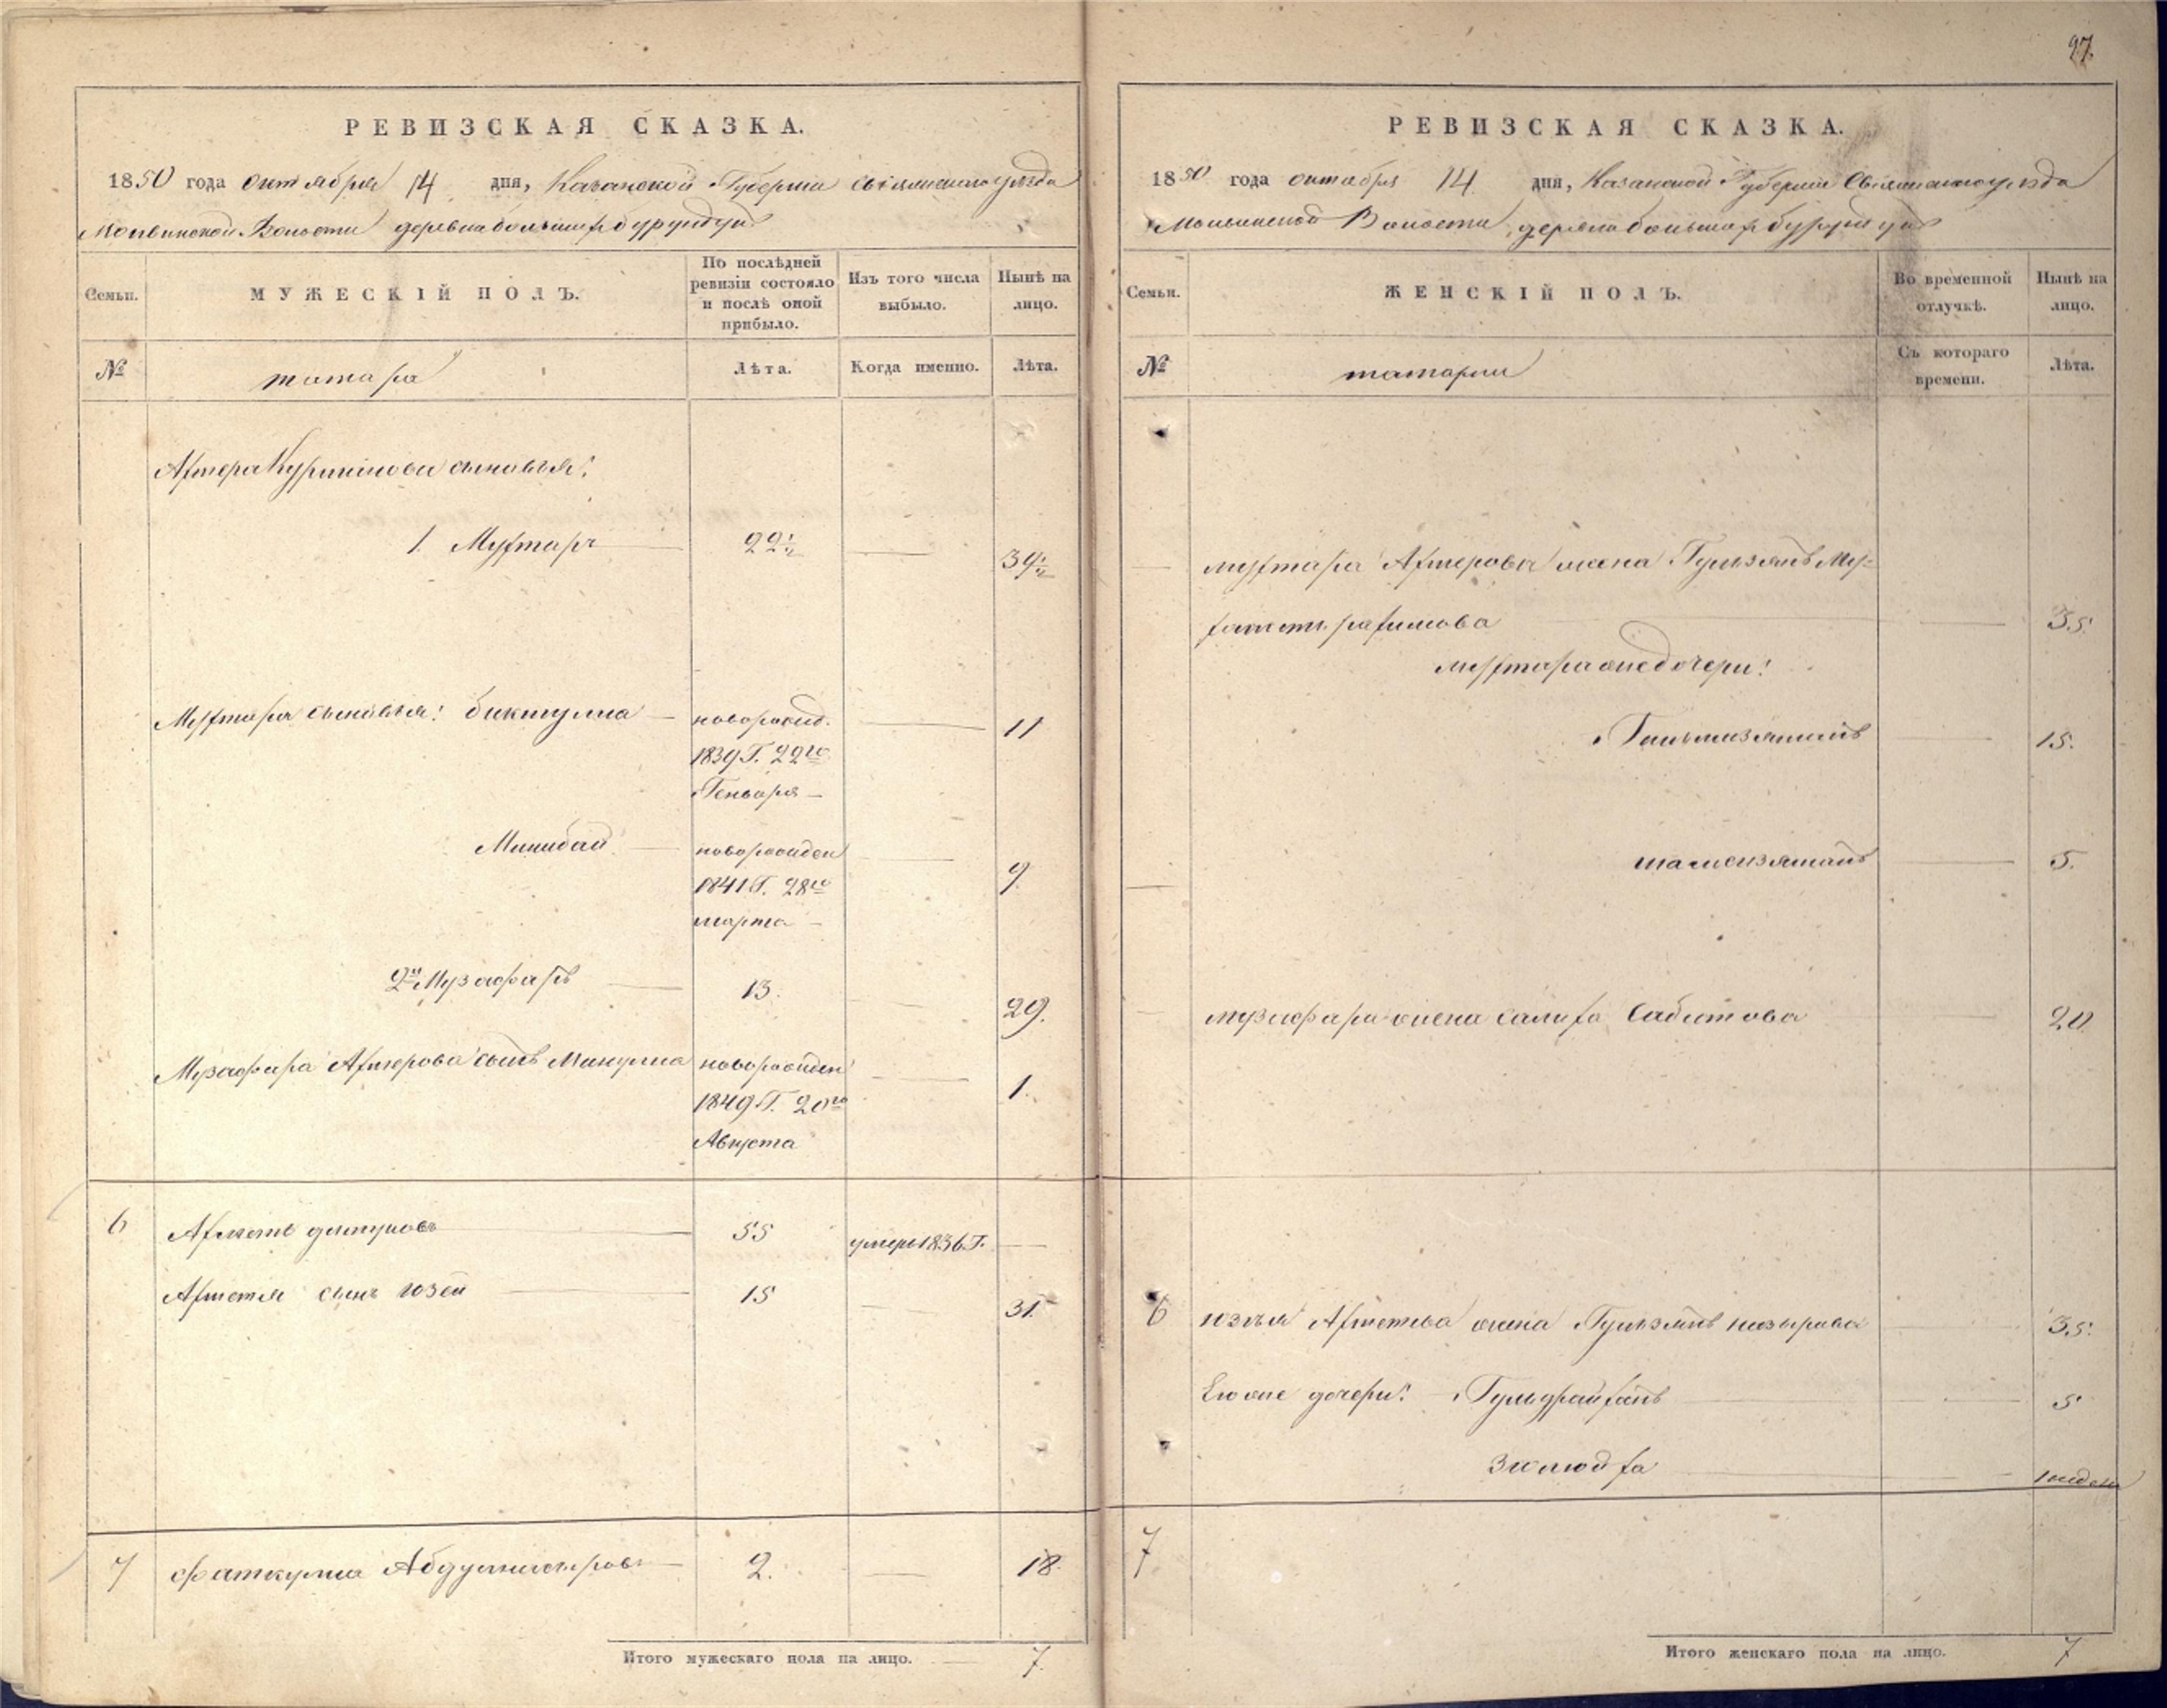 97.
РЕВИЗСКАЯ СКАЗКА.
1850 года октября 14 дня, Казанской Губернии Свіяжскаго уезда
Волости деревни большихъ бурундукъ
Семьи.
МУЖЕСКІЙ ПОЛЪ.
По послѣдней ревизіи состояло и послѣ оной прибыло.
Изъ того числа выбыло.
Нынѣ на лицо.
№
татара
Лѣта.
Когда именно.
Лѣта.
сыновья:
1. Мухтаръ 22½ — 39½
Мухтара сыновья: биктулла — новорожд. — 11
1839 Г. 22го
Генваря —
Минибай — новорожден — 9
1841 Г. 28го
марта —
2й Музафаръ — 13. — 29.
Музафара Ахтерова сынъ Минулла новорожден — 1.
1849 Г. 20го
Августа
6 Ахметь — 55 умеръ 1836 Г. —
Ахметя сынъ юзей — 15 — 31.
7 фаткулла — 2. — 18.
Итого мужескаго пола на лицо. — 7.
РЕВИЗСКАЯ СКАЗКА.
1850 года октября 14 дня, Казанской Губернии Свіяжскаго уезда
Волости деревни большихъ бурундукъ
Семьи.
ЖЕНСКІЙ ПОЛЪ.
Во временной отлучкѣ.
Нынѣ на лицо.
№
татарки
Съ котораго времени.
Лѣта.
— мухтара Ахтерова жена Гульзянъ Му-
рахимова — 35.
мухтара же дочери:
— 15.
— 5.
— музафара жена салиха Сабитова — 20.
6 юзея Ахметева жена — 35.
Его же дочери: — 5
зюлюйха — 1 недели
7
Итого женскаго пола на лицо. 7